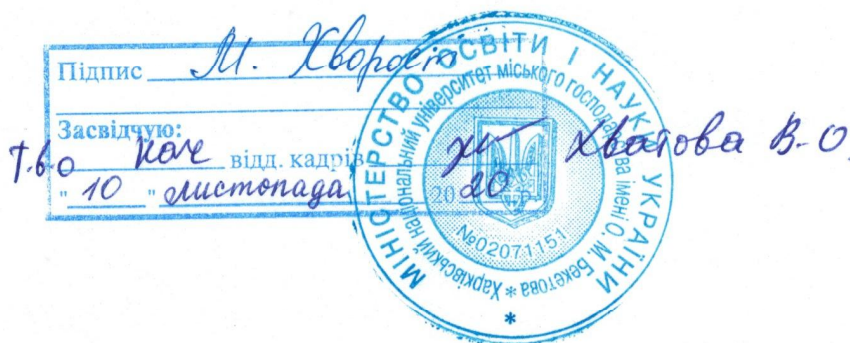 Підпис М. Хворост
Засвідчую:
Т.в.о нач відд. кадрів Хватова В.О.
"10" листопада 2020 р.
МІНІСТЕРСТВО ОСВІТИ І НАУКИ УКРАЇНИ
* Харківський національний університет міського господарства імені О. М. Бекетова
№02071151
*